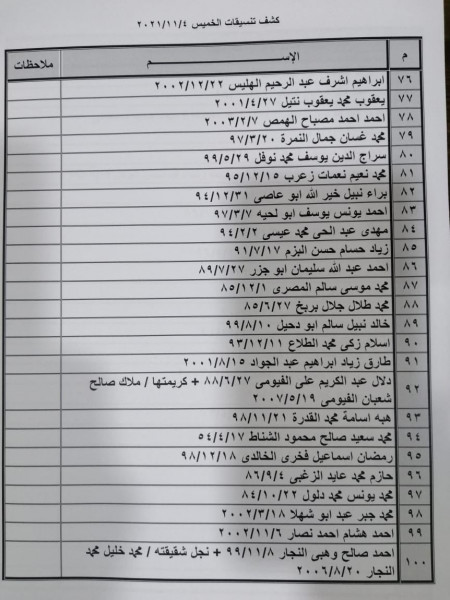 كشف تنسيقات الخميس ٢٠٢١/١١/٤
م الإســـــم ملاحظات
٧٦ ابراهيم اشرف عبد الرحيم الهليس ٢٠٠٢/١٢/٢٢
٧٧ يعقوب محمد يعقوب نتيل ٢٠٠١/٤/٢٧
٧٨ احمد احمد مصباح الهمص ٢٠٠٣/٢/٧
٧٩ محمد غسان جمال النمرة ٩٧/٣/٢٠
٨٠ سراج الدين يوسف محمد نوفل ٩٩/٥/٢٩
٨١ محمد نعيم نعمات زعرب ٩٥/١٢/١٥
٨٢ براء نبيل خير الله ابو عاصى ٩٤/١٢/٣١
٨٣ احمد يونس يوسف ابو لحيه ٩٧/٣/٧
٨٤ مهدى عبد الحى محمد عيسى ٩٤/٢/٢
٨٥ زياد حسام حسن البزم ٩١/٧/١٧
٨٦ احمد عبد الله سليمان ابو جزر ٨٩/٧/٢٧
٨٧ محمد موسى سالم المصرى ٨٥/١٢/١
٨٨ محمد طلال جلال بربخ ٨٥/٦/٢٧
٨٩ خالد نبيل سالم ابو دحيل ٩٩/٨/١٠
٩٠ اسلام زكى محمد الطلاع ٩٣/١٢/١١
٩١ طارق زياد ابراهيم عبد الجواد ٢٠٠١/٨/١٥
٩٢ دلال عبد الكريم على الفيومى ٨٨/٦/٢٧ + كريمتها / ملاك صالح
شعبان الفيومى ٢٠٠٧/٥/١٩
٩٣ هبه اسامة محمد القدرة ٩٨/١١/٢١
٩٤ محمد سعيد صالح محمود الشناط ٥٤/٤/١٧
٩٥ رمضان اسماعيل فخرى الخالدى ٩٨/١٢/١٨
٩٦ حازم محمد عايد الزغبى ٨٦/٩/٤
٩٧ محمد يونس محمد دلول ٨٤/١٠/٢٢
٩٨ محمد جبر عبد ابو شهلا ٢٠٠٢/٣/١٨
٩٩ احمد هشام احمد نصار ٢٠٠٢/١١/٦
١٠٠ احمد صالح وهبى النجار ٩٩/١١/٨ + نجل شقيقته / محمد خليل محمد
النجار ٢٠٠٦/٨/٢٠